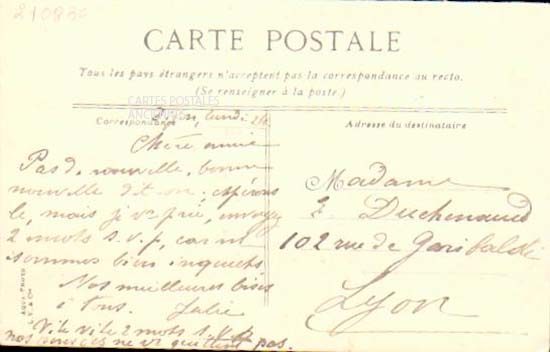 210836
CARTE POSTALE
Tous les pays étrangers n'acceptent pas la correspondance au recto.
(Se renseigner à la poste.)
CARTES POSTALES
ANCIENNES
Correspondance
Adresse du destinataire
lundi 24
Chère amie
Pas d. nouvelle, bonne
nouvelle dit on. espérons
le, mais je vs prie, envoyez
2 mots s.v.p, car nt
sommes bien inquiets
Nos meilleures bises
à tous. Julie
Vite vite 2 mots s.v.p
nos pensées ne vs quittent pas.
Madame
Duchenaud
102 rue de Garibaldi
Lyon